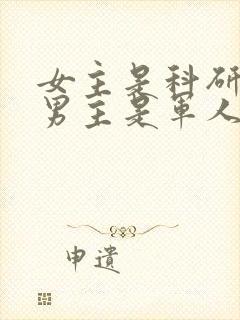 女主是科研
男主是军人
申遗